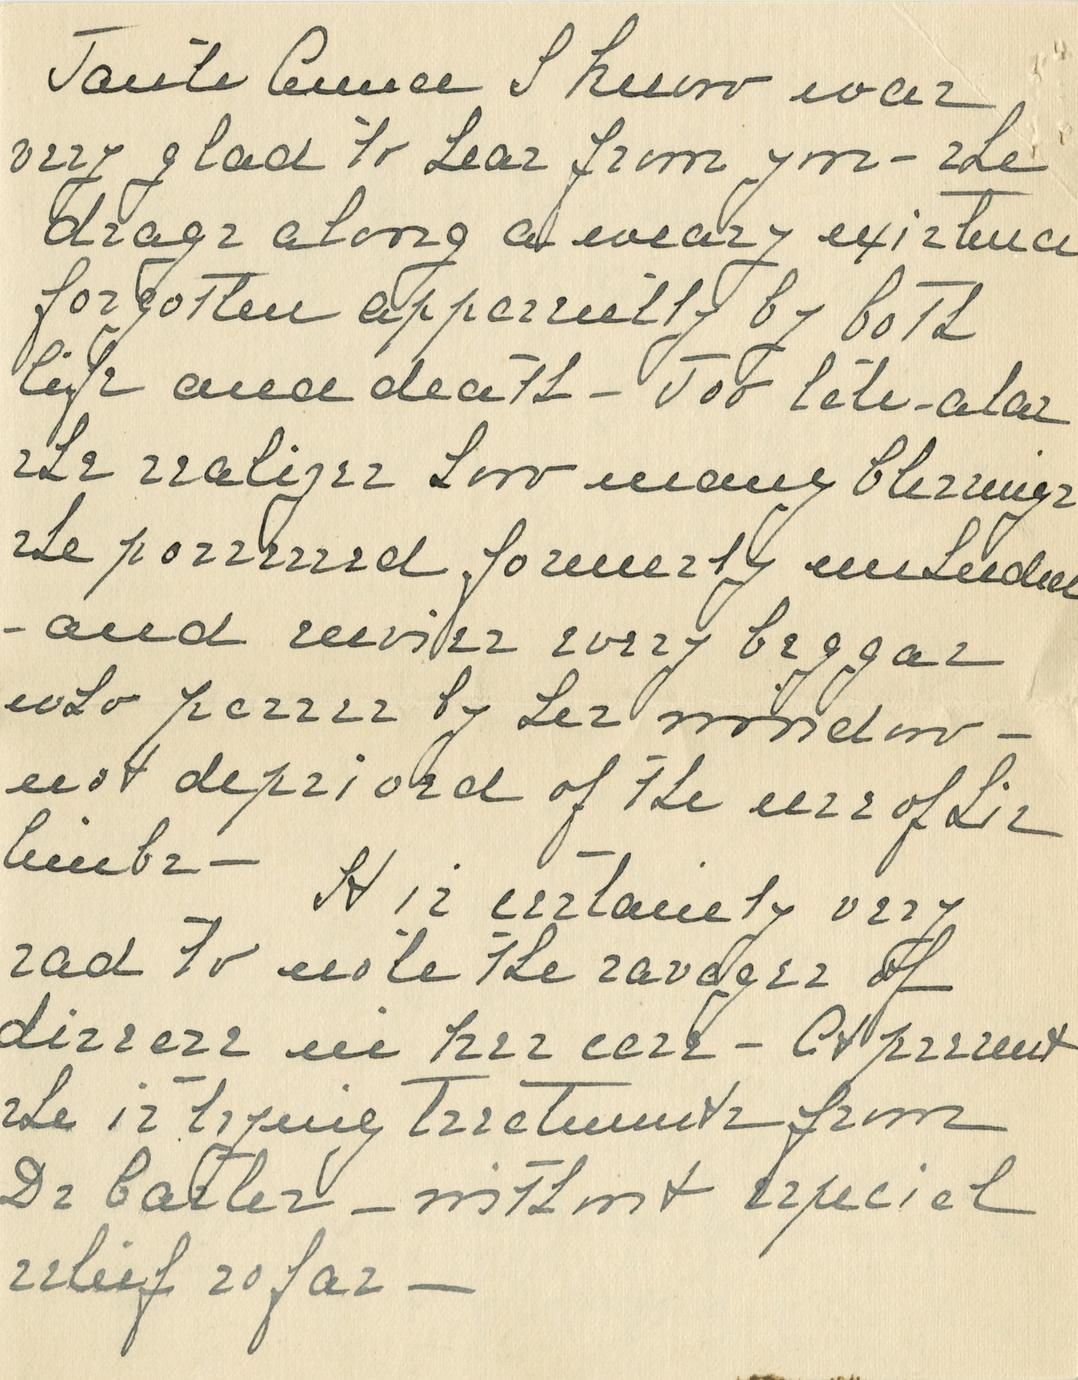 Tante Anna I know was
very glad to hear from you - she
drags along a weary existence
forgotten apparently by both
life and death - Too late - alas
she realizes how many blessings
she possessed formerly unheeded
- and envies every beggar
who passes by her window -
not deprived of the use of his
limbs -
It is certainly very
sad to note the ravages of
disease in her case - At present
she is trying treatments from
Dr - without especial
relief so far -